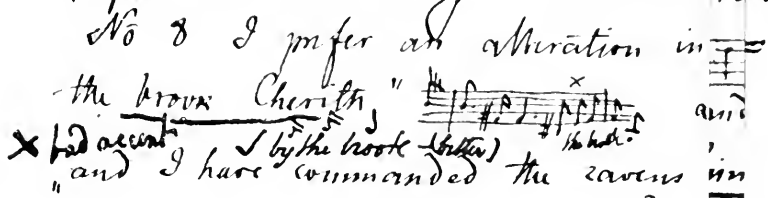 No 8 I prefer an alteration in
the brook Cherith" the brook. and
× bad accent by the brook (better)
"and I have commanded the ravens in